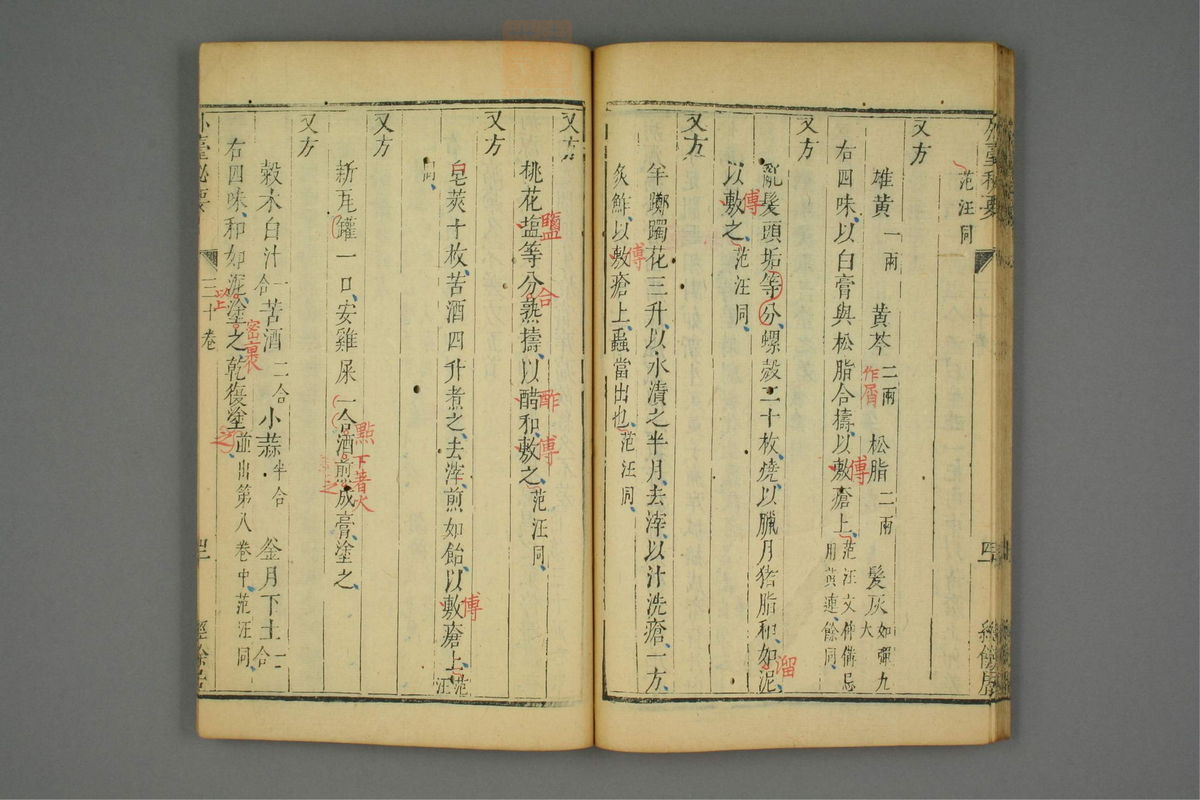 范汪同
又方
雄黃一兩 黃芩二兩 松脂二兩 髮灰如彈九大
右四味以白膏與松脂合擣以敷瘡上范汪文仲備忌用黃連餘同
作屑
傅
又方
亂髮頭垢等分螺殼二十枚燒以臘月猪脂和如泥
溜
以敷之范汪同
傅
又方
羊躑躅花三升以水漬之半月去滓以汁洗瘡一方
炙鮓以敷瘡上蟲當出也范汪同
傅
又方
桃花塩等分熟擣以醋和敷之范汪同
鹽
合
酢
傅
又方
皂莢十枚苦酒四升煮之去滓煎如飴以敷瘡上范汪
傅
同
又方
新瓦罐一口安雞屎一合酒煎成膏塗之
點下著火
又方
穀木白汁一合 苦酒二合 小蒜半合 釜月下土一合
右四味和如泥塗之乾復塗並出第八卷中范汪同
以上
密裹
之
外臺秘要 三十卷 四二 經餘居